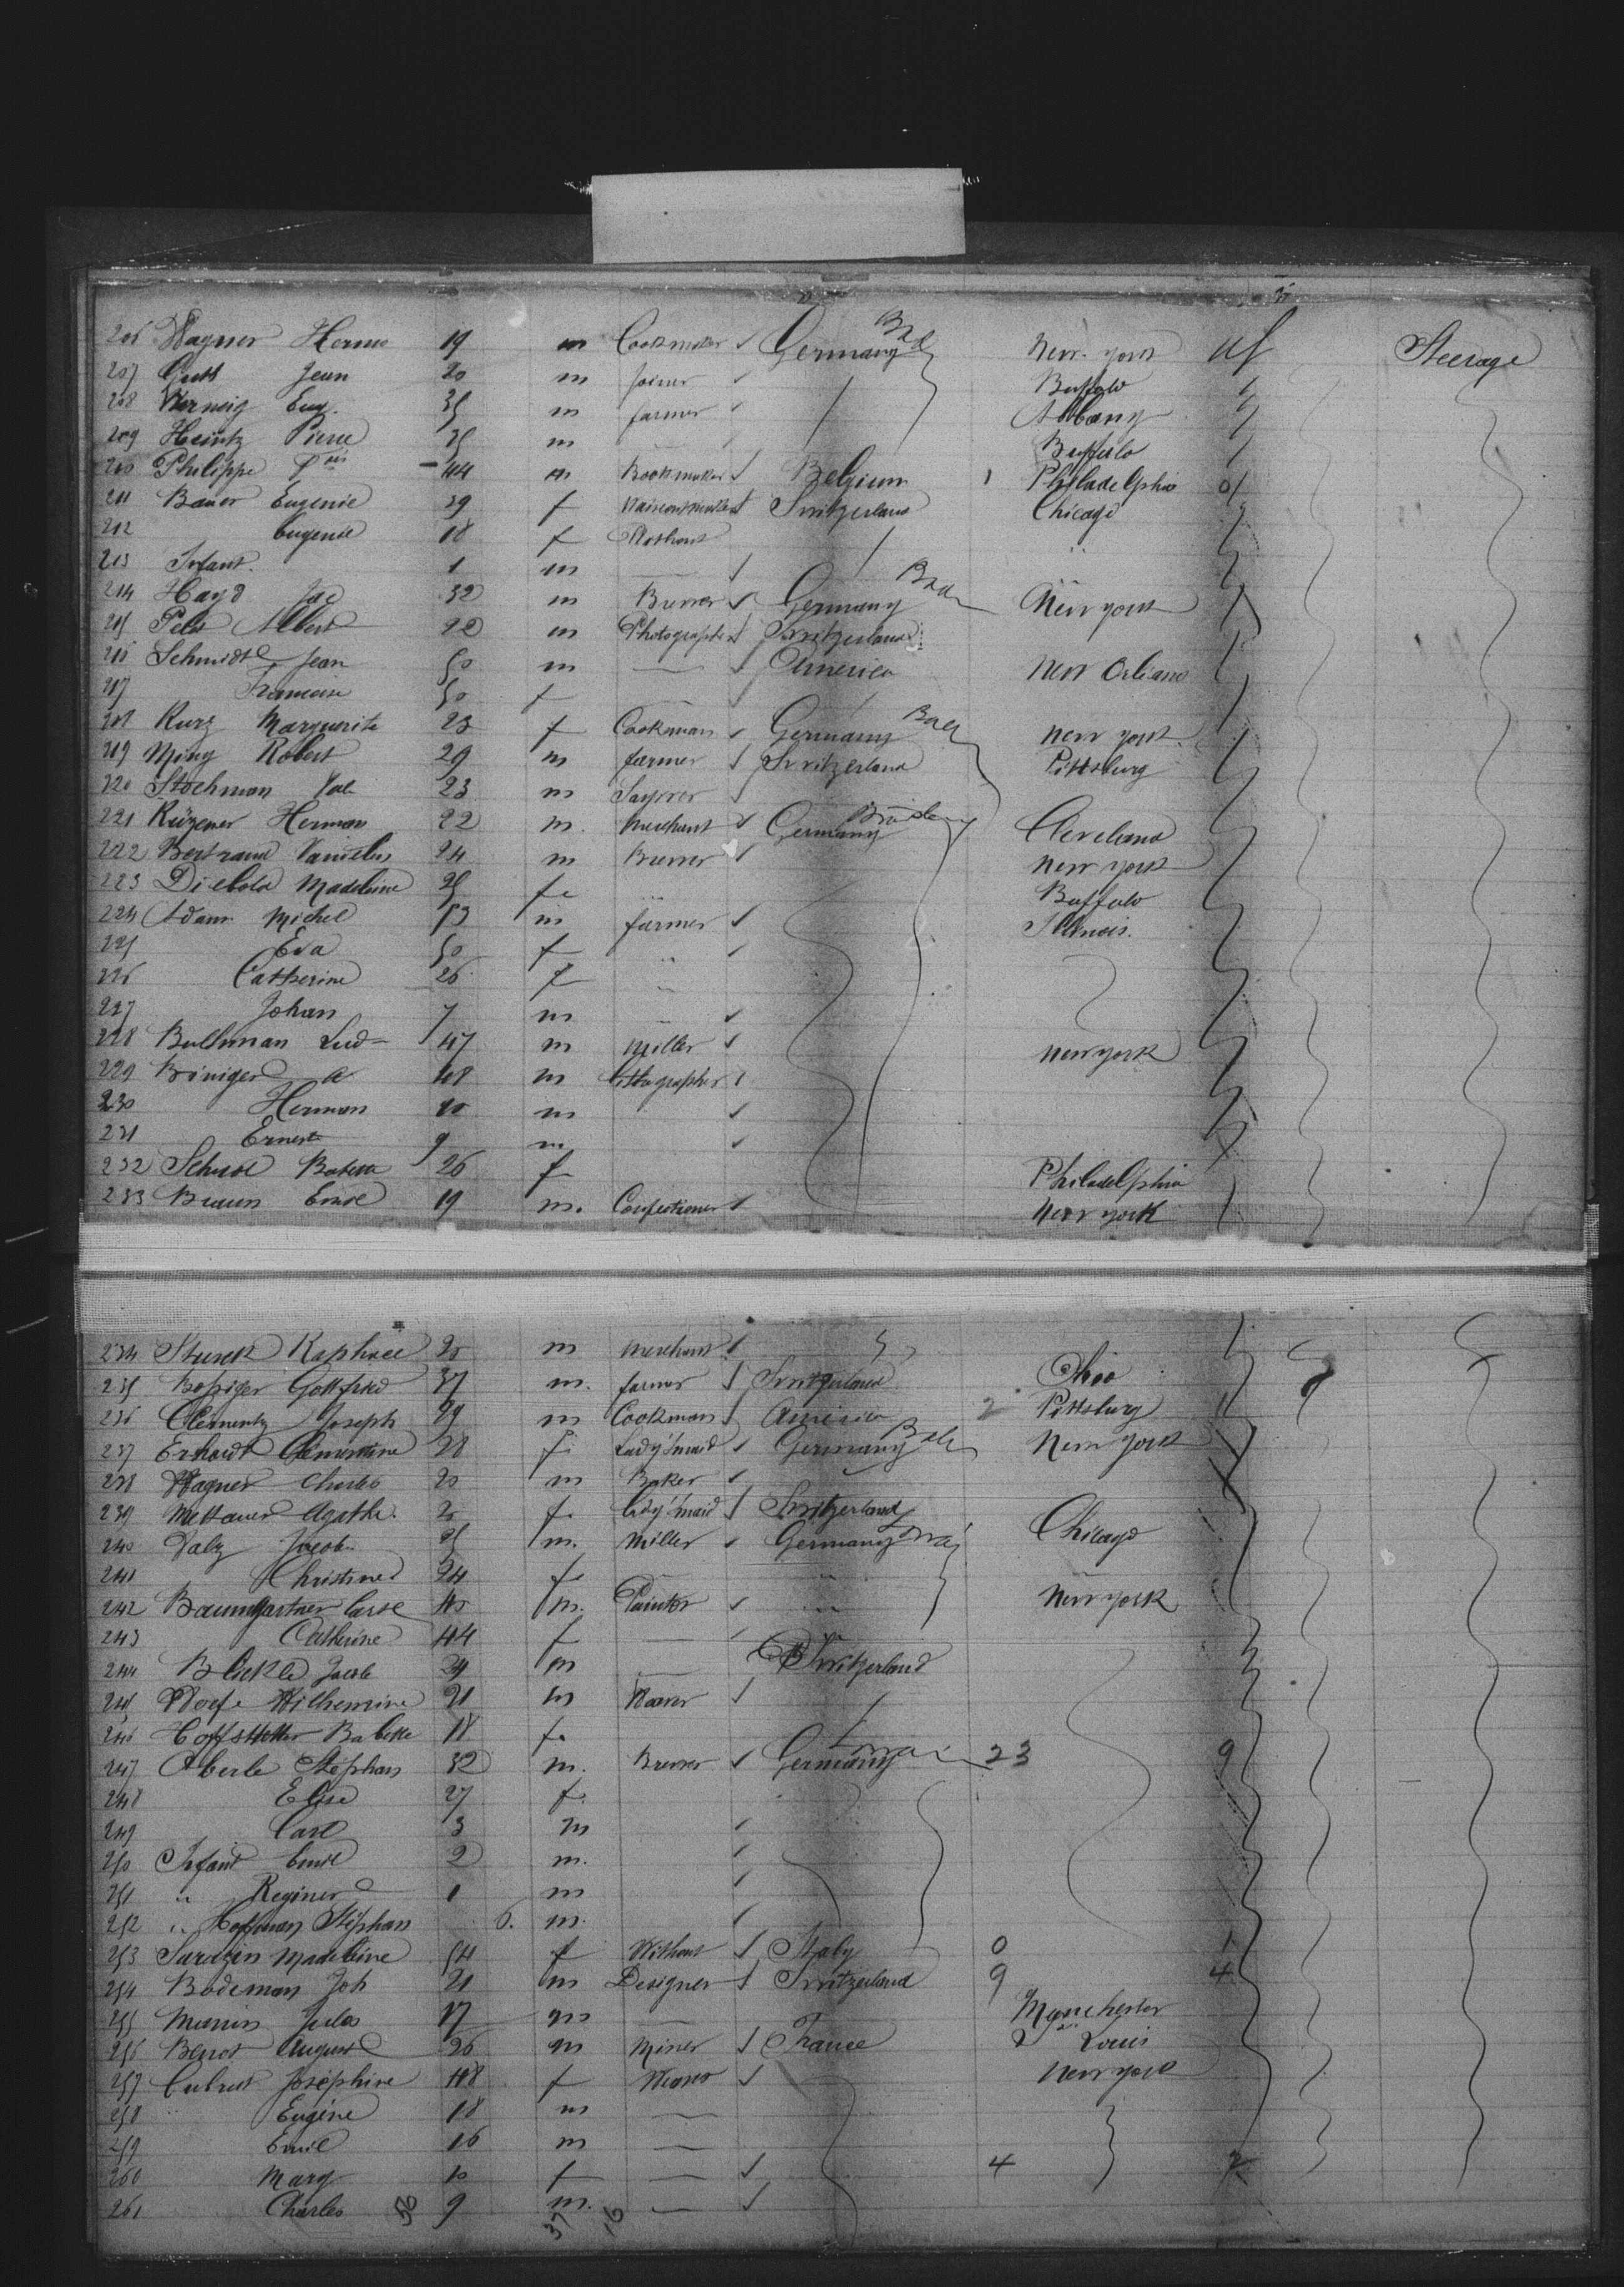 206 Wagner Herm 19 m Cookmaker Germany Bad New-york Uf Steerage
207 Gutt Jean 20 m Joiner Buffalo
208 Eug. 35 m farmer Albany
209 Heintz Pierre 35 m Buffalo
210 Philippe 44 m Bookmaker Belgium 1 Philadelphia
211 Bauer Eugenie 39 f Switzerland Chicago
212 Eugenie 18 f Without
213 Infant. 1 m
214 Hayd Jac 32 m Brewer Germany Bad New york
215 Albert 22 m Photographer Switzerland
216 Schmidt Jean 50 m America New Orleans
217 50 f
218 Kurz Marguerite 23 f Cookman Germany Bad New york
219 Miny Robert 29 m farmer Switzerland Pittsburg
220 Stochman Val 23 m
221 Herman 22 m. Merchant Germany Cleveland
222 Bertrand 24 m Brewer New york
223 Diebold Madeleine 25 f. Buffalo
224 Adam Michel 53 m farmer Illinois.
225 Eva 50 f
226 Catherine 26 f
227 Johan 7 m
228 Bullman Lud 47 m Miller New york
229 Briniger A 48 m Lithographer
230 Herman 10 m
231 Ernest 9 m
232 26 f Philadelphia
233 Braun Emile 19 m. Confectioner New york
234 Raphael 20 m Merchant
235 Bossiger Gottfried 37 m. farmer Switzerland Ohio
236 Clementz Joseph 29 m Cookman America 2 Pittsburg 11
237 Erhardt Clementine 28 f. Lady's maid Germany Bad New York
238 Wagner Charles 20 m Baker
239 Mettauer Agathe. 20 f. Lady's maid Switzerland
240 Jacob 25 m. Miller Germany Chicago
241 Christine 24 f.
242 Baumgartner Carse 40 m. Painter New york
243 Catherine 44 f
244 Blickle Jacob 29 m Switzerland
245 Wilhemine 21 m Weaver
246 Hoffstetter Babette 18 f.
247 Aberle Stephan 32 m. Brewer Germany 23 9
248 Elise 27 f.
249 Carl 3 m
250 Infant Emile 2 m.
251 " Reginer 1 m
252 " Hoffman Stephan 6. m.
253 Sarazin Madeleine 54 f Without Italy 0 1
254 Bodeman Joh 21 m Designer Switzerland 9 4
255 Jules 17 m Manchester
256 Benot August 26 m Miner France St Louis
257 Josephine 48 f Weaver New york
258 Eugène 18 m
259 Emil 16 m
260 Mary 10 f 4 7
261 Charles 56 9 m. 37 16